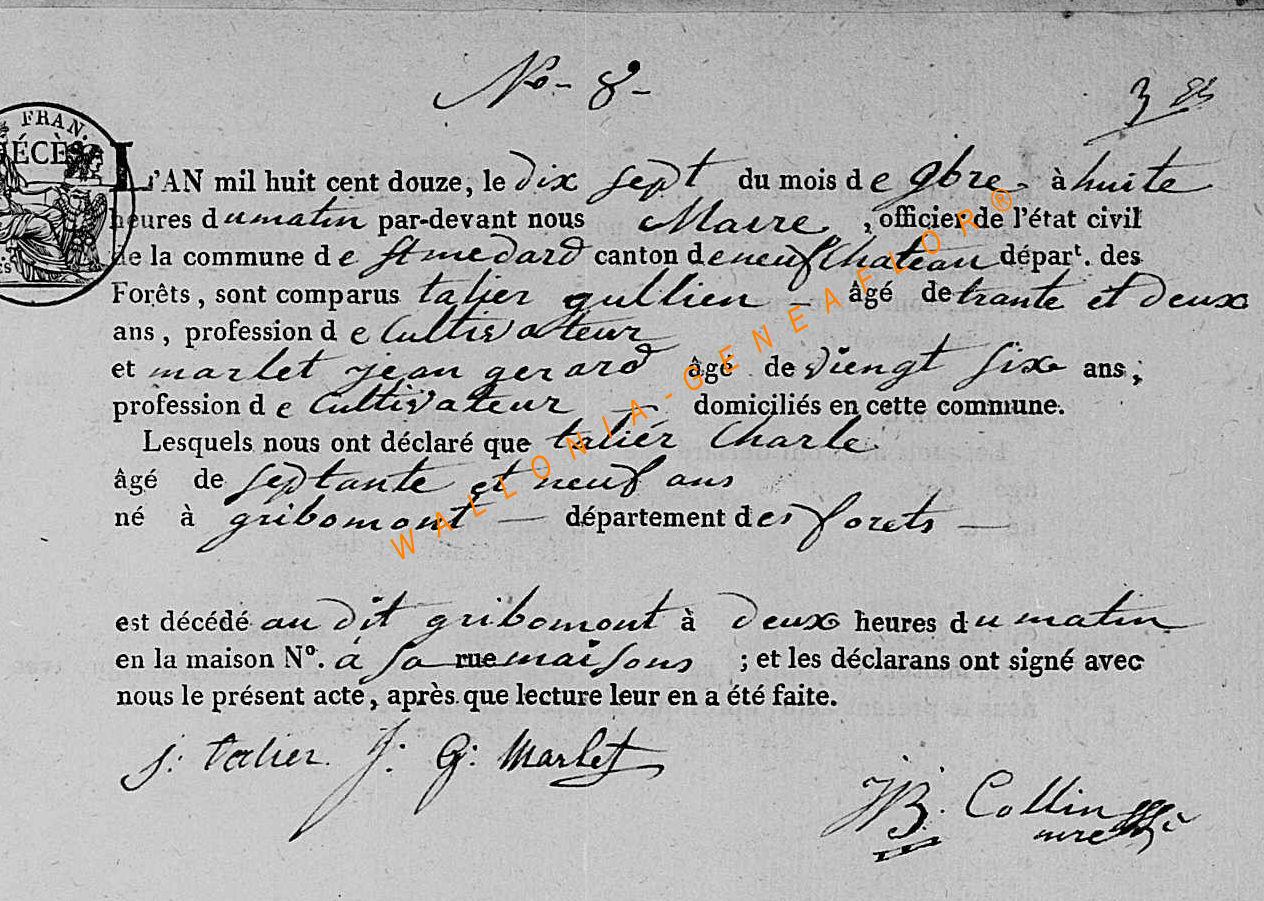 No - 8 -
3
FRAN.
DÉCÈS
L'AN mil huit cent douze, le dix sept du mois de 9bre - à huite
heures du matin par-devant nous Maire , officier de l'état civil
de la commune de St medard canton de neufchateau départ. des
Forêts, sont comparus talier gullien - âgé de trante et deux
ans, profession de Cultivateur
et marlet jean gerard âgé de viengt six ans ;
profession de Cultivateur - domiciliés en cette commune.
Lesquels nous ont déclaré que talier Charle
âgé de septante et neuf ans
né à gribomont - département des forets -
est décédé au dit gribomont à deux heures du matin
en la maison Nº. a sa rue maisons ; et les déclarans ont signé avec
nous le présent acte, après que lecture leur en a été faite.
j: talier J: G: Marlet
JB. Collin
WALLONIA-GENEAFLOR®